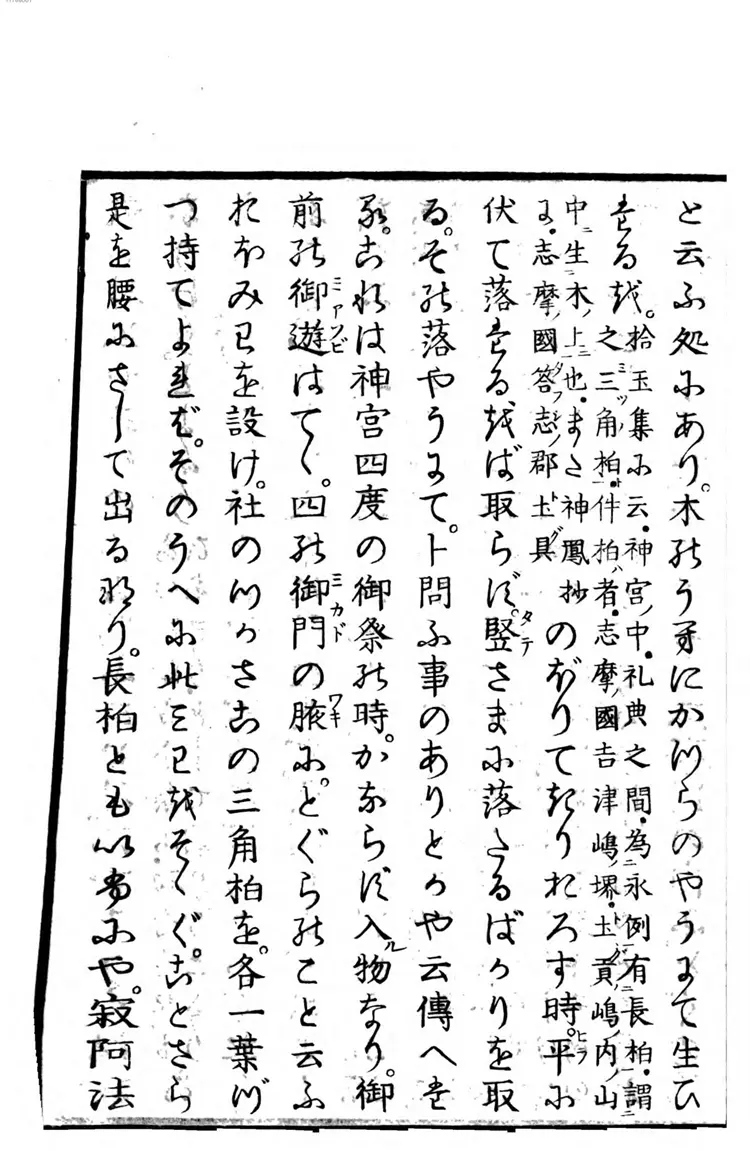 と云ふ処にあり。木のうえにかつらのやうにて生ひ
けるを。拾玉集に云・神宮ノ中・礼典之間・為永例有長柏・謂
之三角柏・件柏者・志摩ノ國吉津嶋ノ堺・土貢嶋ノ内ノ山
中生木ノ上也・また神鳳抄
に・志摩ノ國答志ノ郡土具
のぼりてきりおろす時。平に
伏て落けるをば取らず。竪さまに落たるばかりを取
る。その落やうにて。卜問ふ事のありとかや云傳へけ
る。これは神宮四度の御祭の時。かならず入ル物なり。御
前の御遊はてゝ。四の御門の腋に。とぐらのこと云ふ
おほみわを設け。社のつかさこの三角柏を。各一葉づ
つ持てよれば。そのうへに此みわをそゝぐ。ことさら
是を腰にさして出るなり。長柏ともいふにや。寂阿法